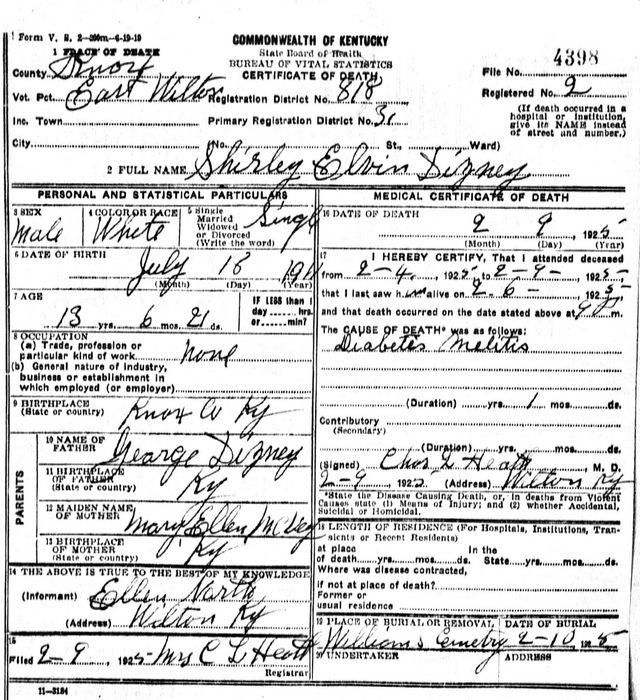 Form V. S. 2-200m-6-19-19
COMMONWEALTH OF KENTUCKY
State Board of Health
BUREAU OF VITAL STATISTICS
CERTIFICATE OF DEATH
4398
1 PLACE OF DEATH
County Knox
File No.
Vot. Pct. East Wilton Registration District No. 818
Registered No. 2
Inc. Town Primary Registration District No.
(If death occurred in a hospital or institution, give its NAME instead of street and number.)
City (No. St., Ward)
2 FULL NAME Shirley Elvin Dizney
PERSONAL AND STATISTICAL PARTICULARS
3 SEX Male
4 COLOR OR RACE White
5 Single Married Widowed or Divorced (Write the word) Singl
6 DATE OF BIRTH July 18 1911
(Month) (Day) (Year)
7 AGE 13 yrs. 6 mos. 21 ds.
IF LESS than 1 day hrs. or min?
8 OCCUPATION
(a) Trade, profession or particular kind of work none
(b) General nature of industry, business or establishment in which employed (or employer)
9 BIRTHPLACE (State or country) Knox Co Ky
PARENTS
10 NAME OF FATHER George Dizney
11 BIRTHPLACE OF FATHER (State or country) Ky
12 MAIDEN NAME OF MOTHER Mary Ellen
13 BIRTHPLACE OF MOTHER (State or country) Ky
14 THE ABOVE IS TRUE TO THE BEST OF MY KNOWLEDGE
(Informant) Ellen
(Address) Wilton Ky
15 Filed 2-9, 1925 Mrs C L Heath
Registrar
11-3184
MEDICAL CERTIFICATE OF DEATH
16 DATE OF DEATH 2 9, 1925
(Month) (Day) (Year)
17 I HEREBY CERTIFY, That I attended deceased
from 2-4, 1925, to 2-9-, 1925,
that I last saw him alive on 2 6-, 1925
and that death occurred on the date stated above at 9 m.
The CAUSE OF DEATH* was as follows:
Diabetes Melitis
(Duration) yrs. 1 mos. ds.
Contributory
(Secondary)
(Duration) yrs. mos. ds.
(Signed) Chas L Heath, M. D.
2-9, 192 (Address) Wilton Ky
*State the Disease Causing Death, or, in deaths from Violent Causes state (1) Means of Injury; and (2) whether Accidental, Suicidal or Homicidal.
18 LENGTH OF RESIDENCE (For Hospitals, Institutions, Transients or Recent Residents)
at place of death yrs. mos. ds. In the State yrs. mos. ds.
Where was disease contracted,
if not at place of death?
Former or
usual residence
19 PLACE OF BURIAL OR REMOVAL Williams Cemetry
DATE OF BURIAL 2-10, 1925
20 UNDERTAKER
ADDRESS